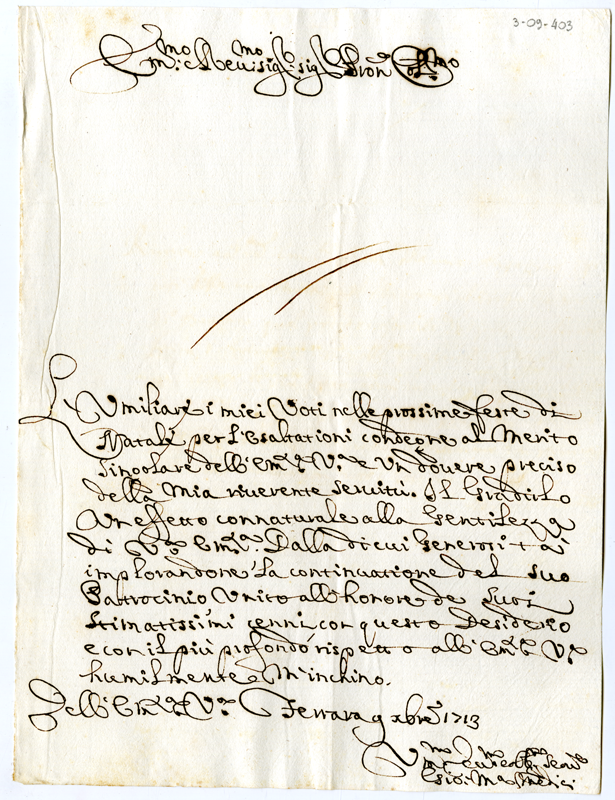 3-09-403
Em:mo e Rev:mo sig:e sig:e Pron: Col:mo
L'Umiliare i miei Voti nelle prossime feste di
Natale, per l'Esaltationi condegne al Merito
singolare dell'Em:a V:a è Un dovere preciso
della Mia riverente servitù. Il Gradirlo
Un effetto connaturale alla Gentilezza
di V:a Em:a. Dalla di cui Generosità
implorandone la continuatione del suo
Patrocinio Unito all'honore de Suoi
stimatissimi cenni, con questo Desiderio
e con il più profondo rispetto all'Em:a V:a
humilmente M'inchino.
Dell'Em:a V:a Ferrara 9 xbre 1713
Gio: Ma